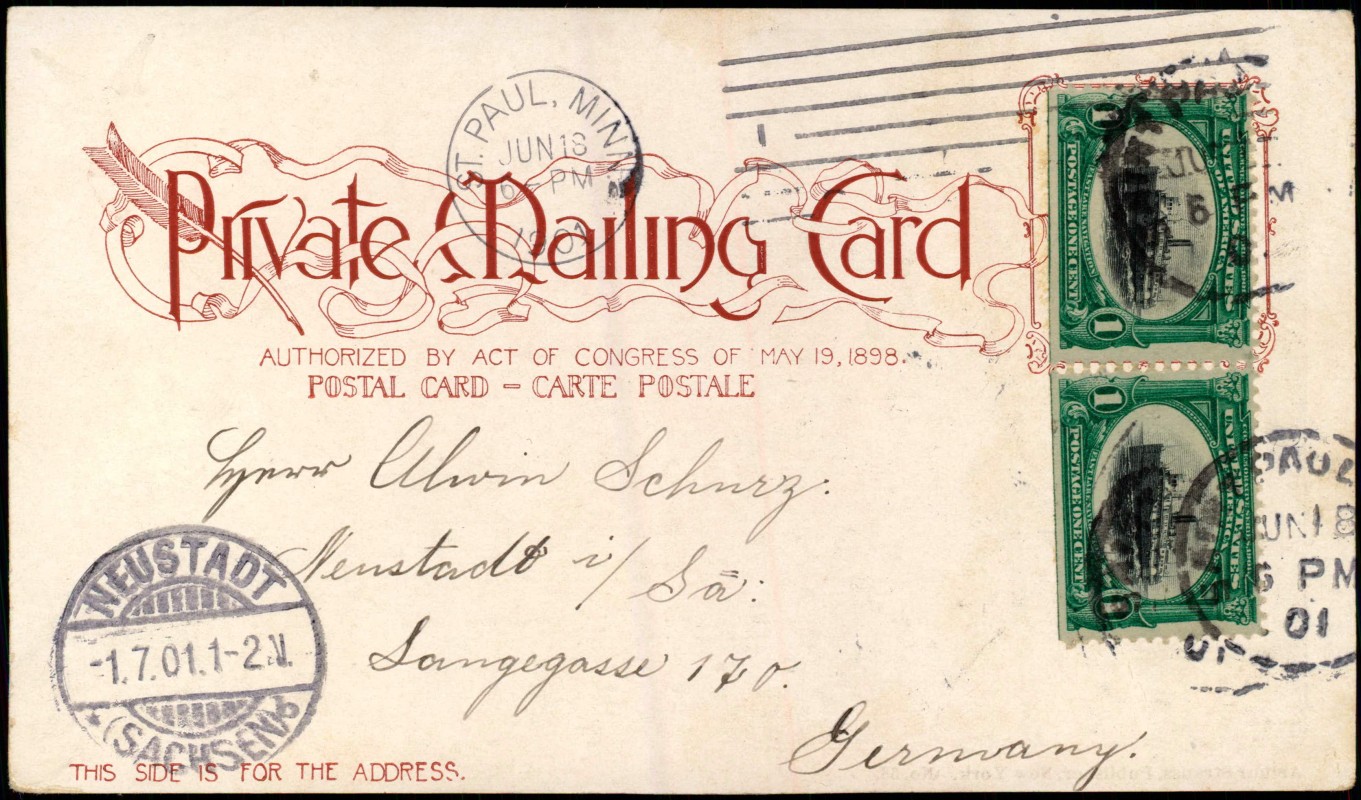 ST. PAUL, MINN.
JUN 18
6 - PM
1901
Private Mailing Card
AUTHORIZED BY ACT OF CONGRESS OF MAY 19, 1898.
POSTAL CARD – CARTE POSTALE
1
POSTAGE ONE CENT
UNITED STATES
1
6 PM
1
POSTAGE ONE CENT
UNITED STATES
1
PAUL
JUN 18
6 PM
01
Herr Alwin Schurz.
Neustadt i/Sa:
Langegasse 170.
Germany.
NEUSTADT
-1.7.01.1-2.N.
*(SACHSEN)b
THIS SIDE IS FOR THE ADDRESS.